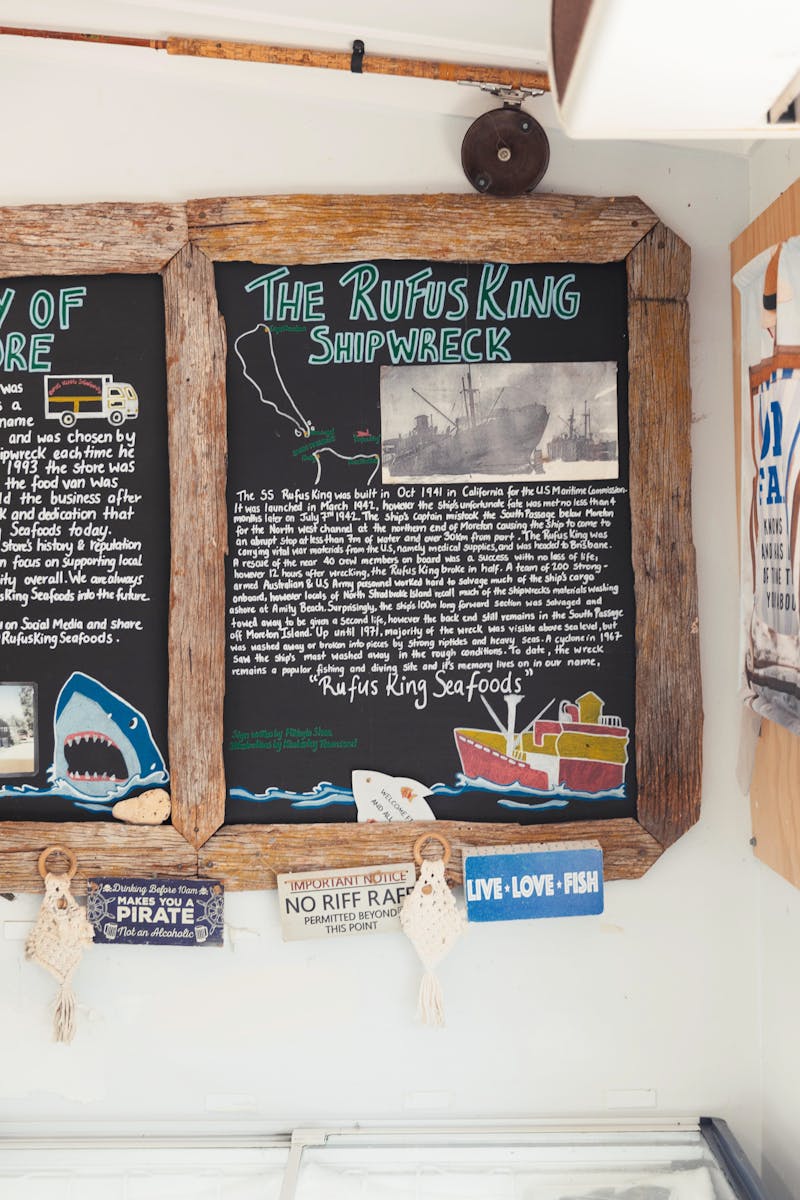 Y OF
RE
was
s a
name
and was chosen by
ipwreck each time he
1993 the store was
the food van was
ld the business after
k and dedication that
Seafoods today.
store's history & reputation
n focus on supporting local
ity overall. We are always
sKing Seafoods into the future.
on Social Media and share
RufusKing Seafoods.
THE RUFUS KING
SHIPWRECK
The SS Rufus King was built in Oct 1941 in California for the U.S Maritime Commission.
It was launched in March 1942, however the ship's unfortunate fate was met no less than 4
months later on July 7th 1942. The ship's captain mistook the South Passage below Moreton
for the North west channel at the northern end of Moreton causing the ship to come to
an abrupt stop at less than 7m of water and over 30km from port. The Rufus King was
carrying vital war materials from the U.S, namely medical supplies, and was headed to Brisbane.
A rescue of the near 40 crew members on board was a success with no loss of life,
however 12 hours after wrecking, the Rufus King broke in half. A team of 200 strong-
armed Australian & U.S Army personnel worked hard to salvage much of the ship's cargo
onboard, however locals of North Stradbroke Island recall much of the shipwrecks materials washing
ashore at Amity Beach. Surprisingly, the ship's 100m long forward section was salvaged and
towed away to be given a second life, however the back end still remains in the South Passage
off Moreton Island. Up until 1971, majority of the wreck was visible above sea level, but
was washed away or broken into pieces by strong riptides and heavy seas. A cyclone in 1967
saw the ship's mast washed away in the rough conditions. To date, the wreck
remains a popular fishing and diving site and it's memory lives on in our name,
"Rufus King Seafoods"
WELCOME
AND ALL
Drinking Before 10am
MAKES YOU A
PIRATE
Not an Alcoholic
IMPORTANT NOTICE
NO RIFF RAFF
PERMITTED BEYOND
THIS POINT
LIVE ★ LOVE ★ FISH
FA
KNOWS
AND HIS